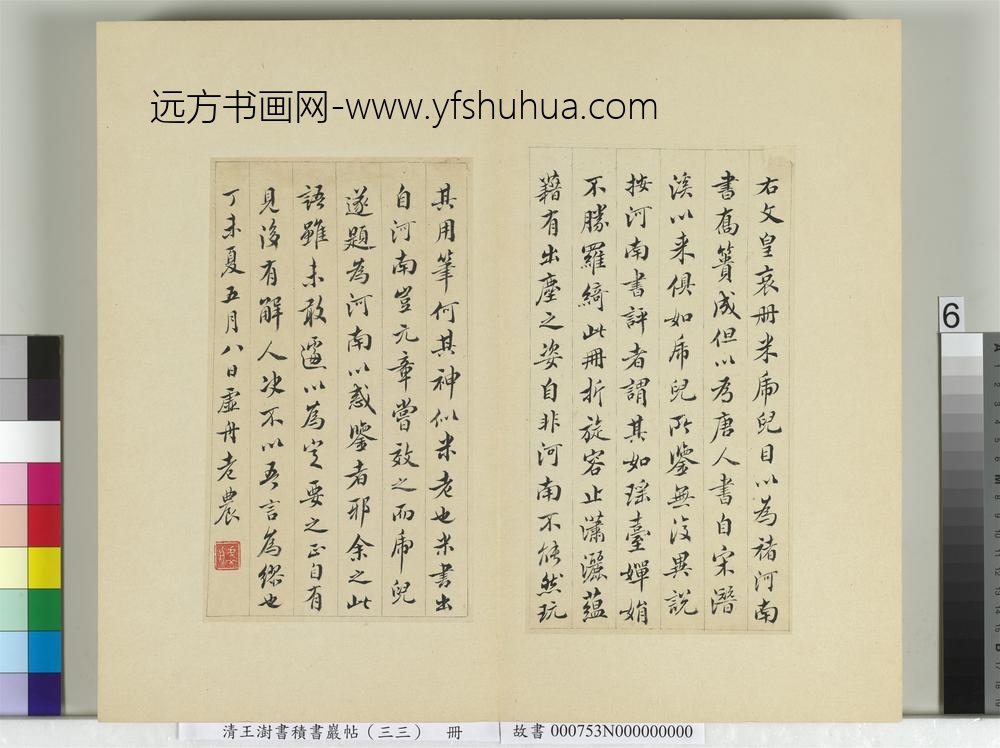 远方书画网-www.yfshuhua.com
右文皇哀册米虎兒目以為褚河南
書舊簣成但以为唐人書自宋潛
溪以来俱如虎兒所鑒無復異說
按河南書評者謂其如瑶臺嬋娟
不勝羅綺此冊折旋容止瀟灑蘊
藉有出塵之姿自非河南不能然玩
其用筆何其神似米老也米書出
自河南豈元章嘗效之而虎兒
遂題為河南以惑鑒者邪余之此
語雖未敢遽以為定要之正自有
見後有解人决不以吾言為繆也
丁未夏五月八日虛舟老農
6
清王澍書積書巖帖（三三） 冊
故書 000753N000000000